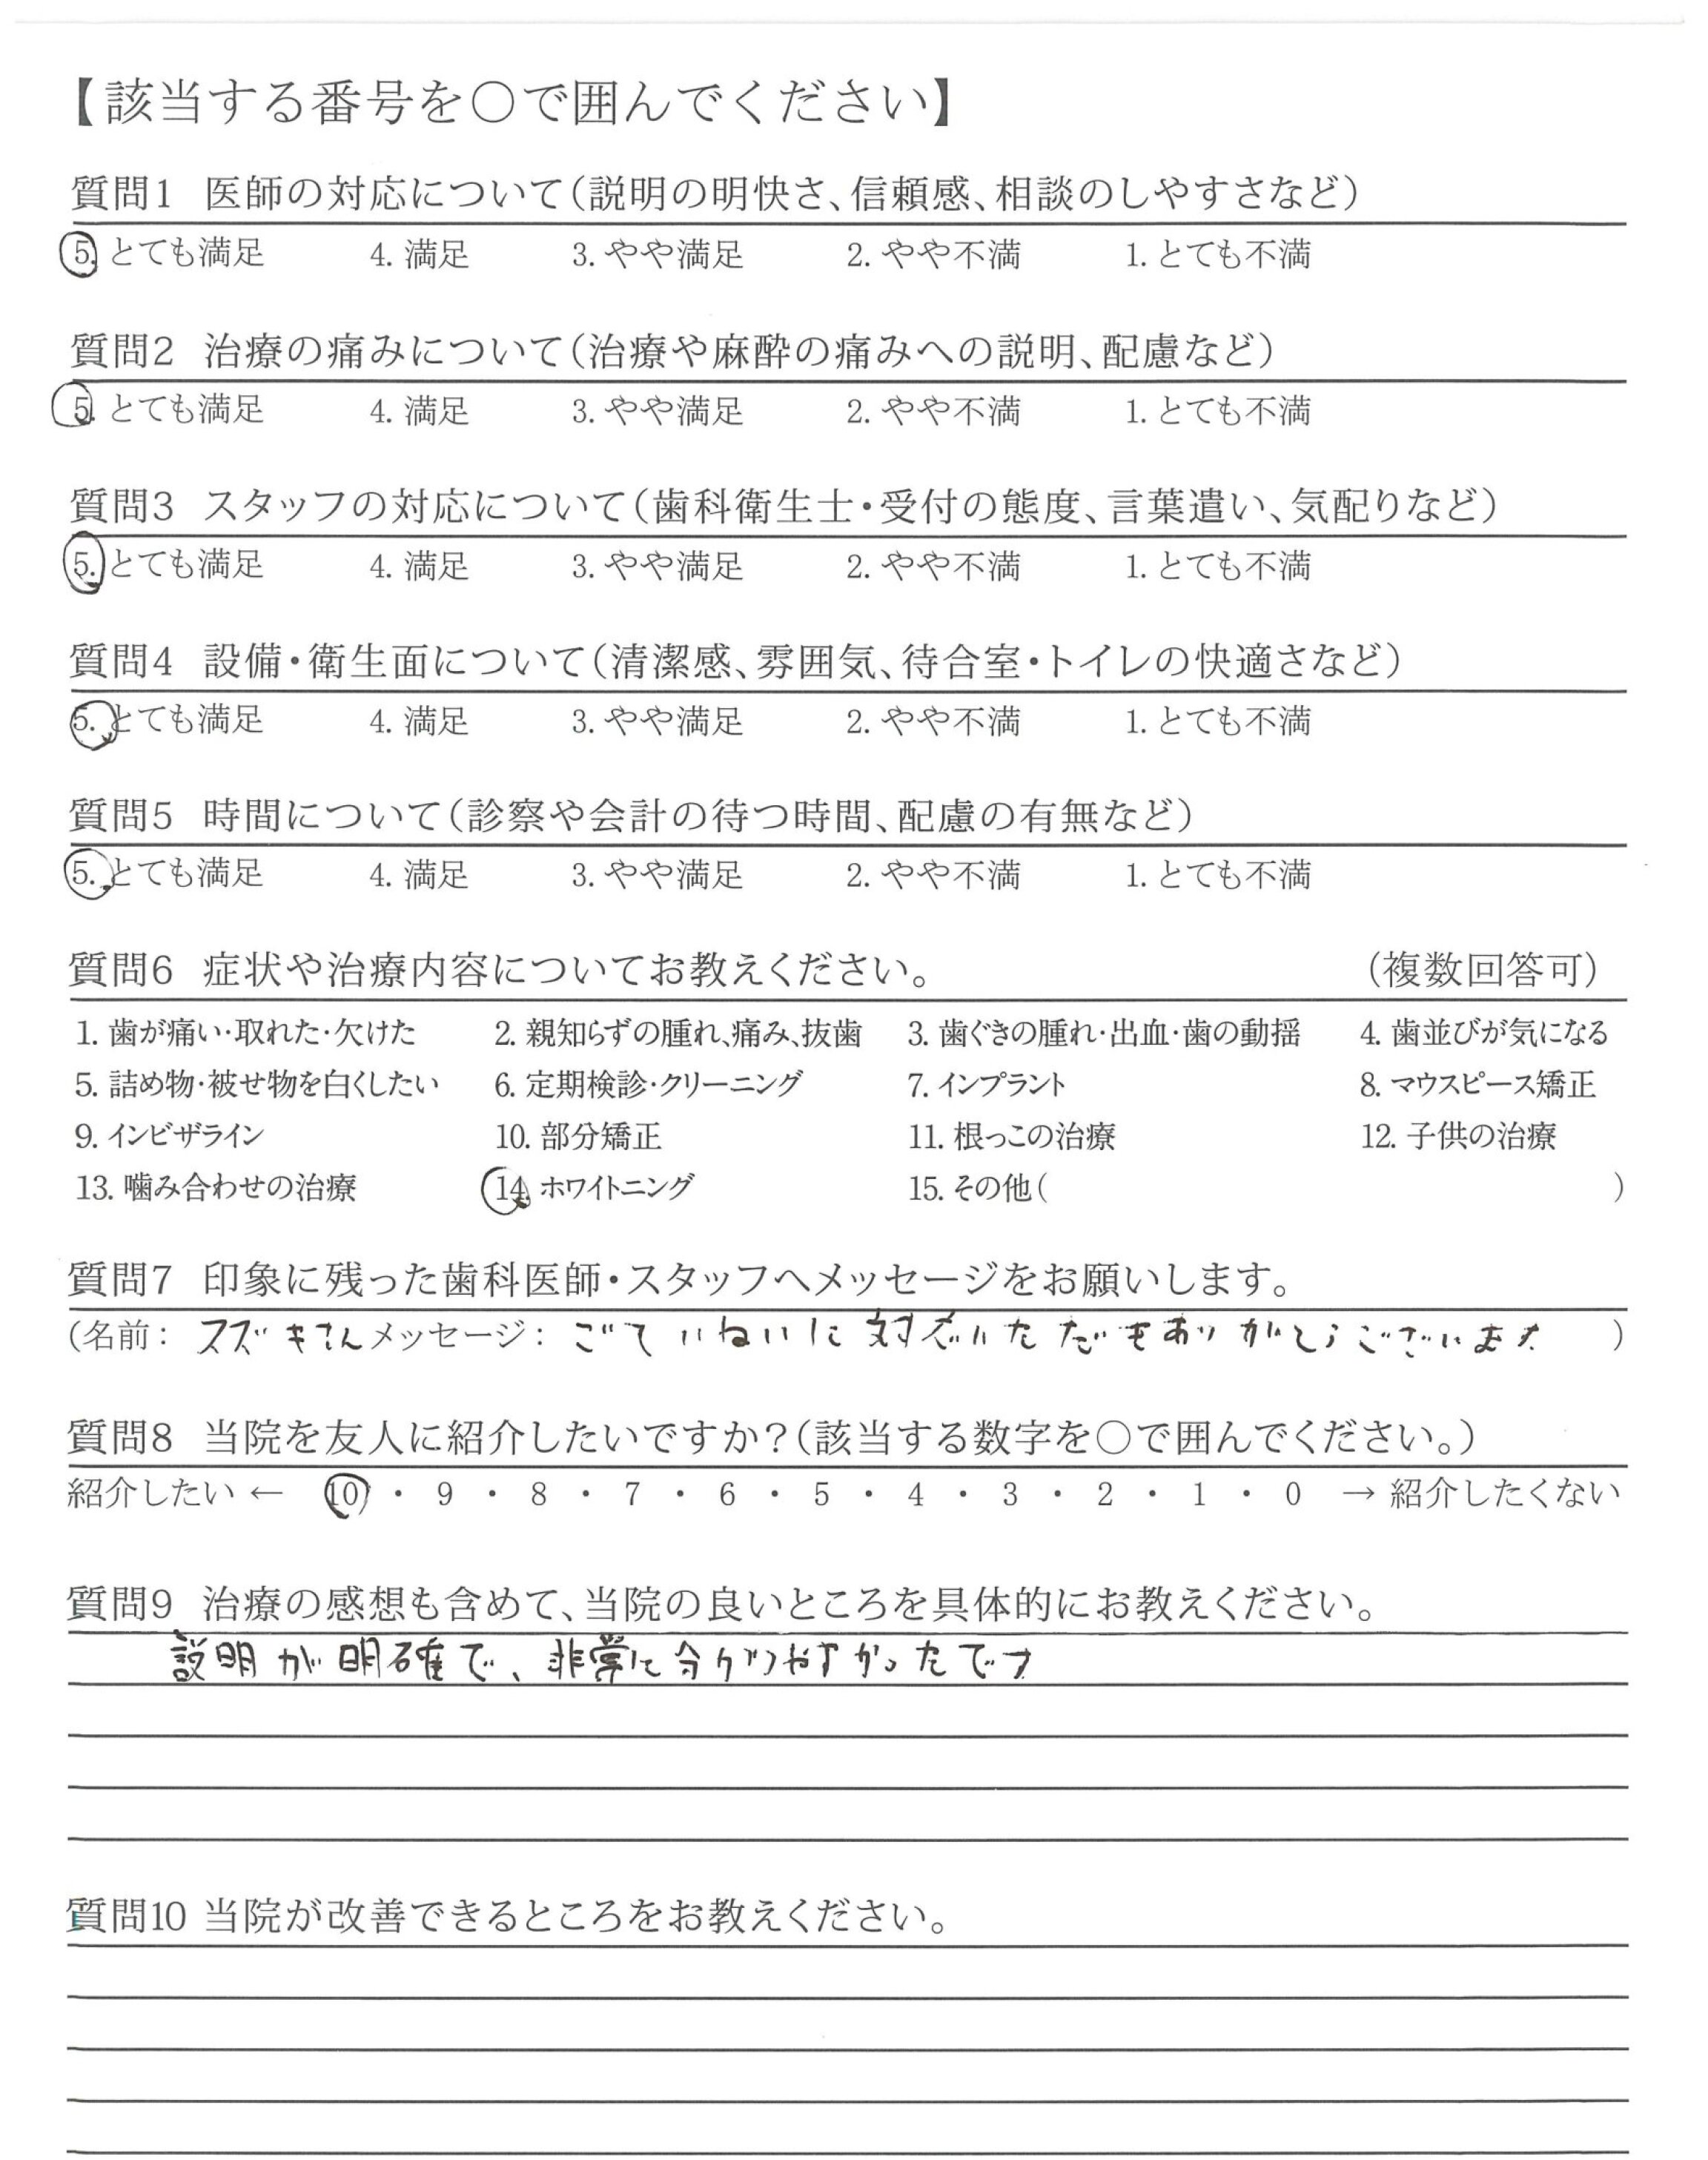 【該当する番号を○で囲んでください】
質問1 医師の対応について(説明の明快さ、信頼感、相談のしやすさなど)
5. とても満足 4. 満足 3. やや満足 2. やや不満 1. とても不満
質問2 治療の痛みについて(治療や麻酔の痛みへの説明、配慮など)
5. とても満足 4. 満足 3. やや満足 2. やや不満 1. とても不満
質問3 スタッフの対応について(歯科衛生士・受付の態度、言葉遣い、気配りなど)
5. とても満足 4. 満足 3. やや満足 2. やや不満 1. とても不満
質問4 設備・衛生面について(清潔感、雰囲気、待合室・トイレの快適さなど)
5. とても満足 4. 満足 3. やや満足 2. やや不満 1. とても不満
質問5 時間について(診察や会計の待つ時間、配慮の有無など)
5. とても満足 4. 満足 3. やや満足 2. やや不満 1. とても不満
質問6 症状や治療内容についてお教えください。 (複数回答可)
1. 歯が痛い・取れた・欠けた 2. 親知らずの腫れ、痛み、抜歯 3. 歯ぐきの腫れ・出血・歯の動揺 4. 歯並びが気になる
5. 詰め物・被せ物を白くしたい 6. 定期検診・クリーニング 7. インプラント 8. マウスピース矯正
9. インビザライン 10. 部分矯正 11. 根っこの治療 12. 子供の治療
13. 噛み合わせの治療 14. ホワイトニング 15. その他( )
質問7 印象に残った歯科医師・スタッフへメッセージをお願いします。
(名前: スズキさん メッセージ: ごていねいに対応いただきありがとうございます )
質問8 当院を友人に紹介したいですか?(該当する数字を○で囲んでください。)
紹介したい ← 10 ・ 9 ・ 8 ・ 7 ・ 6 ・ 5 ・ 4 ・ 3 ・ 2 ・ 1 ・ 0 → 紹介したくない
質問9 治療の感想も含めて、当院の良いところを具体的にお教えください。
説明が明確で、非常に分かりやすかったです
質問10 当院が改善できるところをお教えください。